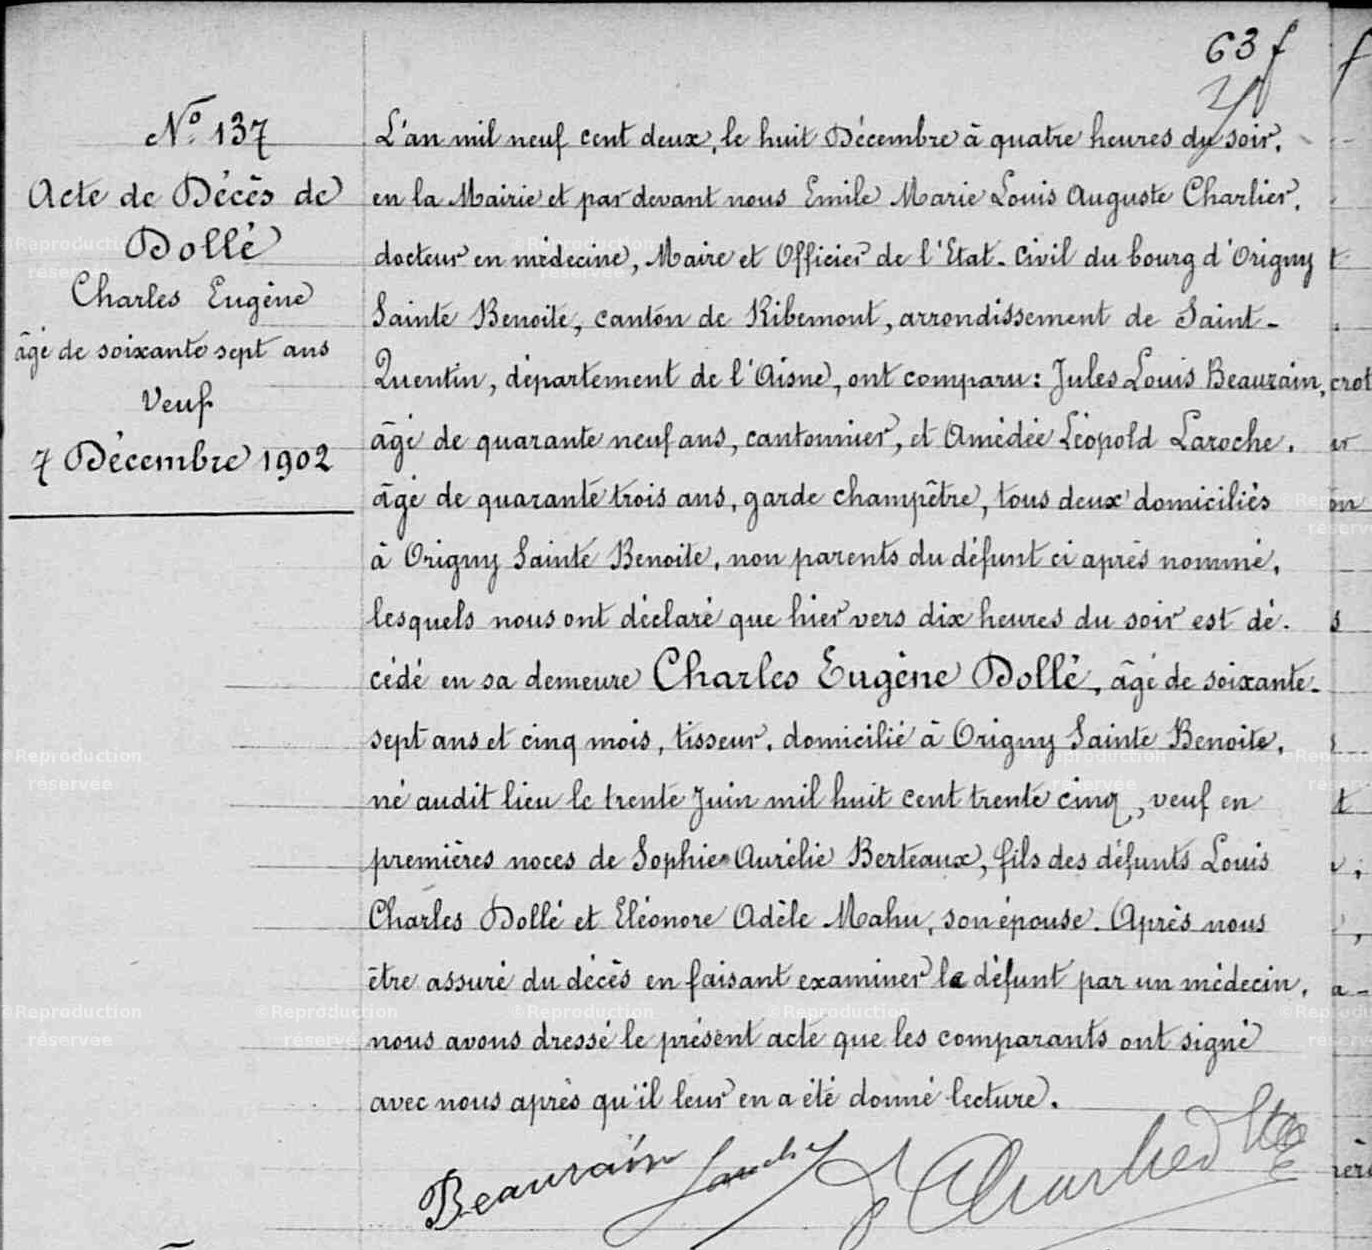 63 f
N° 137
Acte de Décès de
Dollé
Charles Eugène
âgé de soixante sept ans
Veuf
7 Décembre 1902
L'an mil neuf cent deux, le huit Décembre à quatre heures du soir,
en la Mairie et par devant nous Emile Marie Louis Auguste Charlier,
docteur en médecine, Maire et Officier de l'Etat-Civil du bourg d'Origny
Sainte Benoite, canton de Ribemont, arrondissement de Saint-
Quentin, département de l'Aisne, ont comparu: Jules Louis Beaurain,
âgé de quarante neuf ans, cantonnier, et Amédée Léopold Laroche,
âgé de quarante trois ans, garde champêtre, tous deux domiciliés
à Origny Sainte Benoite, non parents du défunt ci après nommé,
lesquels nous ont déclaré que hier vers dix heures du soir est dé-
cédé en sa demeure Charles Eugène Dollé, âgé de soixante-
sept ans et cinq mois, tisseur, domicilié à Origny Sainte Benoite,
né audit lieu le trente Juin mil huit cent trente cinq, veuf en
premières noces de Sophie Aurélie Berteaux, fils des défunts Louis
Charles Dollé et Eléonore Adèle Mahu, son épouse. Après nous
être assuré du décès en faisant examiner le défunt par un médecin,
nous avons dressé le présent acte que les comparants ont signé
avec nous après qu'il leur en a été donné lecture.
Beaurain
Charlier
©Reproduction
réservée